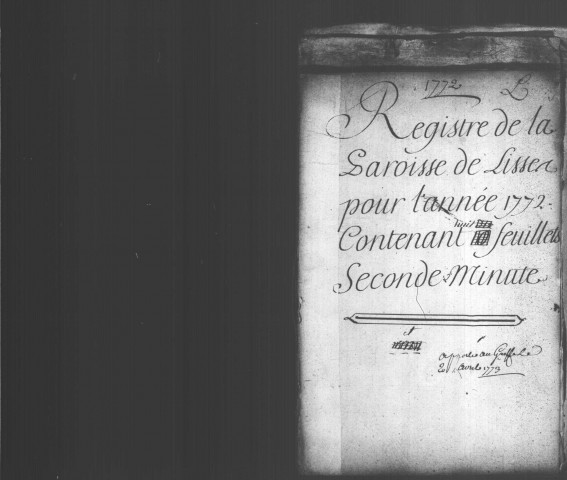 1772 L
Registre de la
Paroisse de Lisses
pour l'année 1772.
Contenant huit feuillets
Seconde Minute
et
apporté au Greffe le
avril 1773